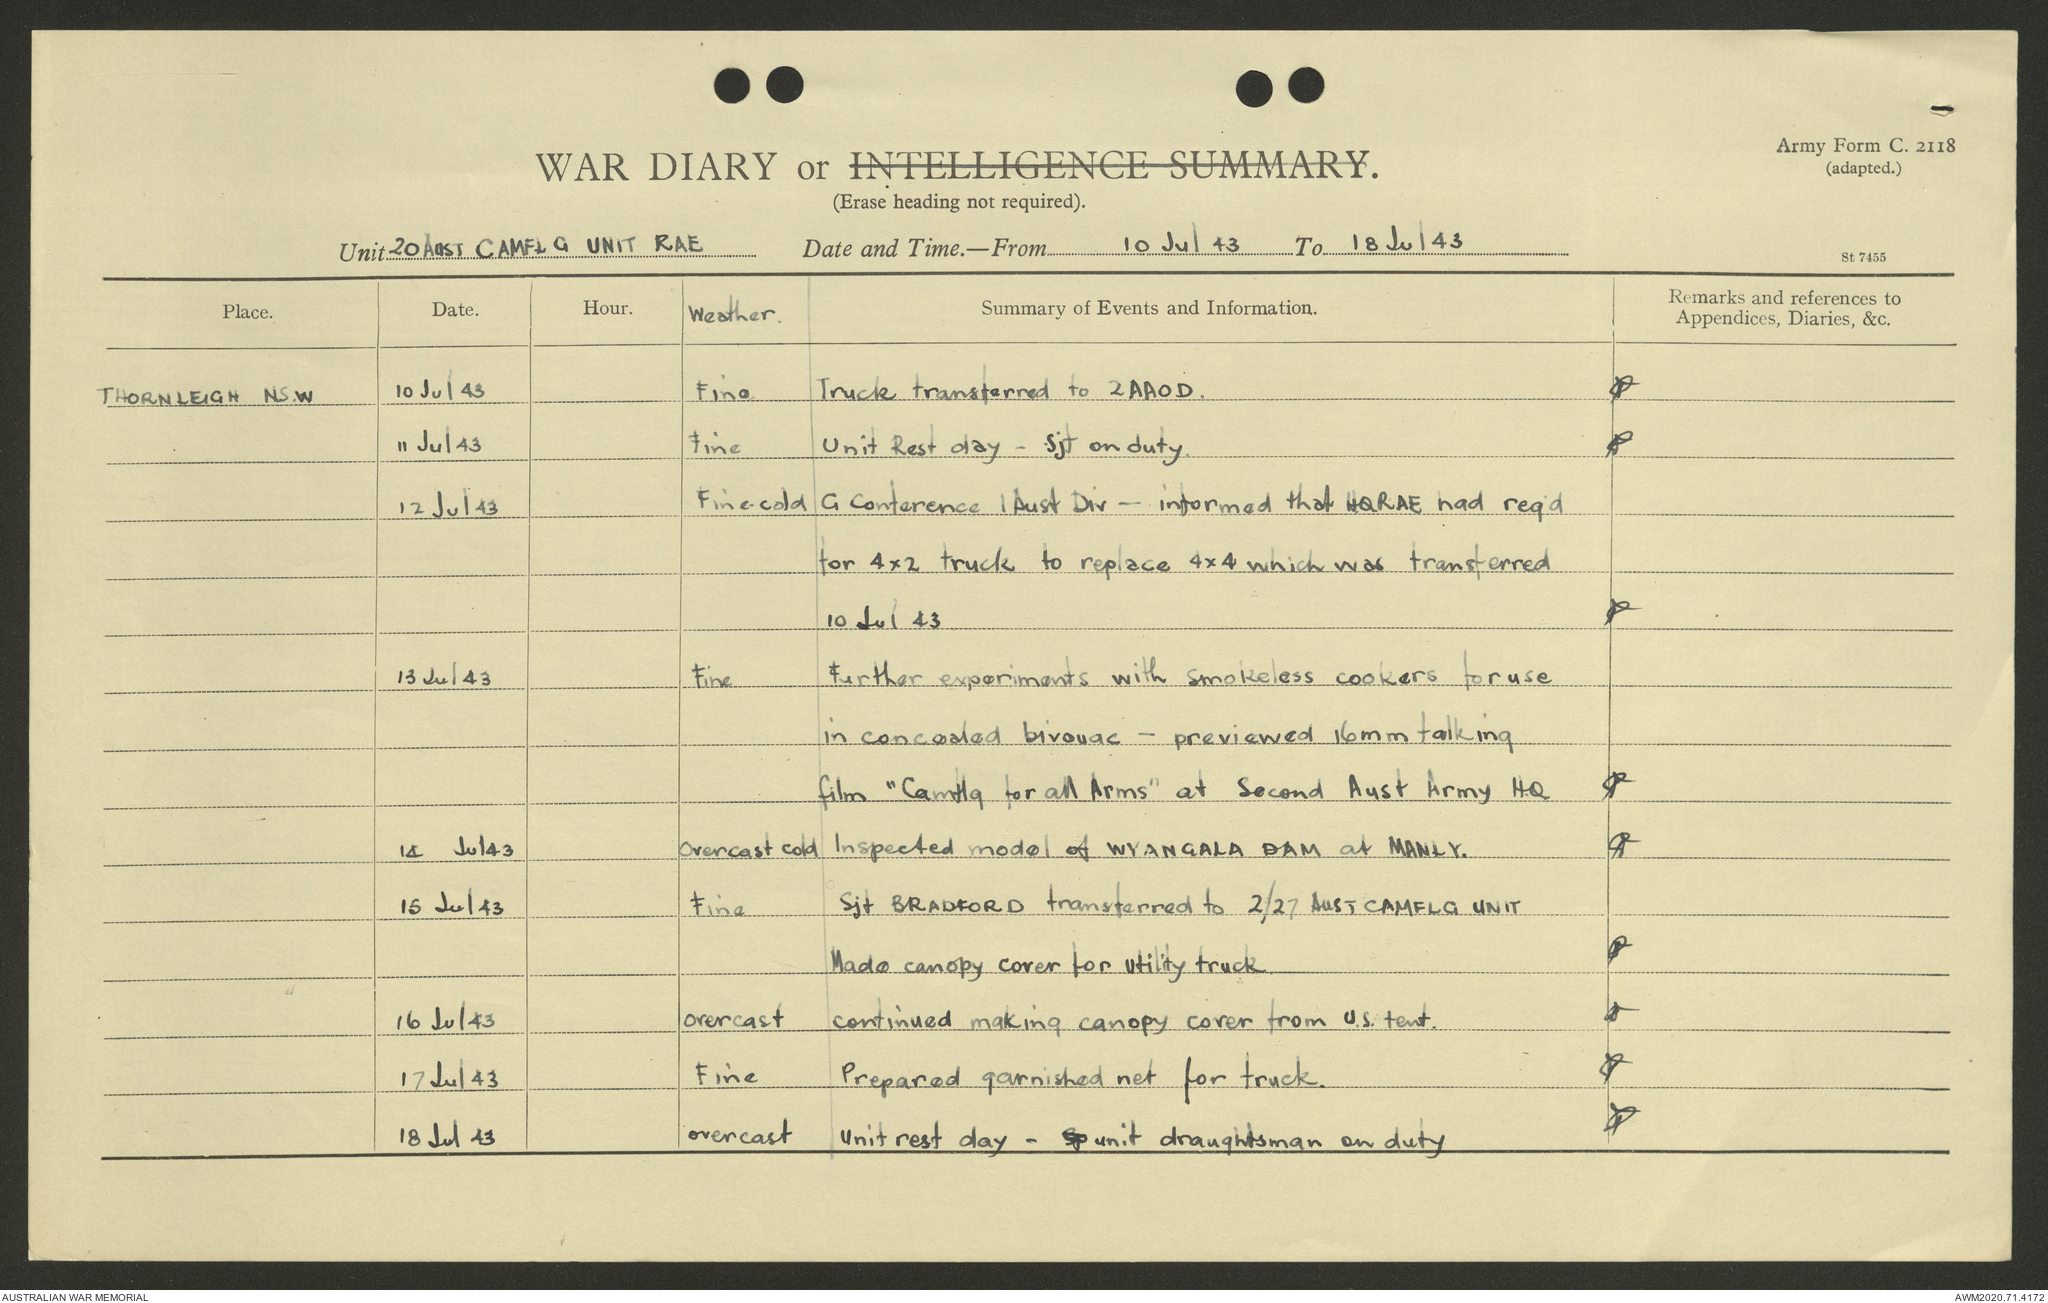 Army Form C. 2118
(adapted.)
WAR DIARY or INTELLIGENCE SUMMARY.
(Erase heading not required).
Unit 20 AUST CAMFLG UNIT RAE Date and Time.—From 10 Jul 43 To 18 Jul 43
St 7455
Place. Date. Hour. Weather. Summary of Events and Information. Remarks and references to
Appendices, Diaries, &c.
THORNLEIGH NSW 10 Jul 43 Fine Truck transferred to 2AAOD.
11 Jul 43 Fine Unit Rest day - Sjt on duty.
12 Jul 43 Fine-cold G Conference 1 Aust Div - informed that HQRAE had req'd
for 4x2 truck to replace 4x4 which was transferred
10 Jul 43
13 Jul 43 Fine Further experiments with smokeless cookers for use
in concealed bivouac - previewed 16mm talking
film "Camflg for all Arms" at Second Aust Army HQ
14 Jul 43 Overcast cold Inspected model of WYANGALA DAM at MANLY.
15 Jul 43 Fine Sjt BRADFORD transferred to 2/27 AUST CAMFLG UNIT
Made canopy cover for utility truck
16 Jul 43 overcast continued making canopy cover from U.S. tent.
17 Jul 43 Fine Prepared garnished net for truck.
18 Jul 43 overcast Unit rest day - unit draughtsman on duty
AUSTRALIAN WAR MEMORIAL
AWM2020.71.4172